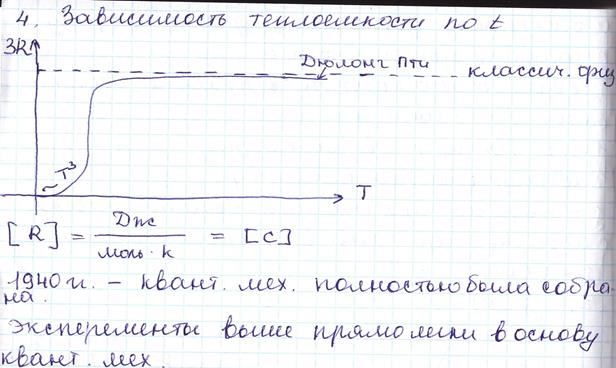 4. Зависимость теплоемкости по t
3R
Дюлонг Пти
классич. физ
~ T³
T
[R] = Дж / моль·к = [C]
1940 гг. – квант. мех. полностью была собра
на.
Эксперементы выше прямо легли в основу
квант. мех.